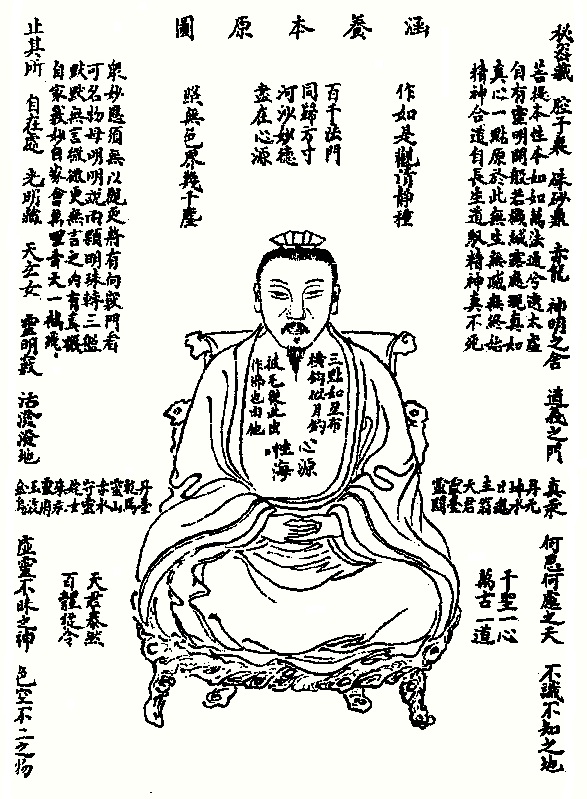 涵養本原圖
秘密藏 腔子裏 硃砂鼎 赤龍 神明之舍 道義之門 真汞 何思何慮之天 不識不知之地
菩提本性本如如萬法通兮湛太虛
自有靈明開般若機緘露處現真如
真心一點原於此無生無滅無終始
精神合道自長生道馭精神真不死
作如是觀清靜種
百千法門
同歸方寸
河沙妙德
盡在心源
照無色界幾千塵
眾妙應須無以觀更將有向竅門看
可名物母明明說兩顆明珠轉三盤
默默無言微微更無言之內有玄機
自家義妙自家會萬里青天一鶴飛
三點如星布
橫鈎似月
披毛從此出
作佛也由他
心源
性海
丹元
神水
日魂
主翁
天君
靈臺
靈關
千聖一心
萬古一道
丹臺
乾馬
靈山
赤水
守靈
姹女
靈府
金烏
天君泰然
百體從令
止其所 自在處 光明藏 天玄女 靈明竅 活潑潑地 虛靈不昧之神 色空不二之物